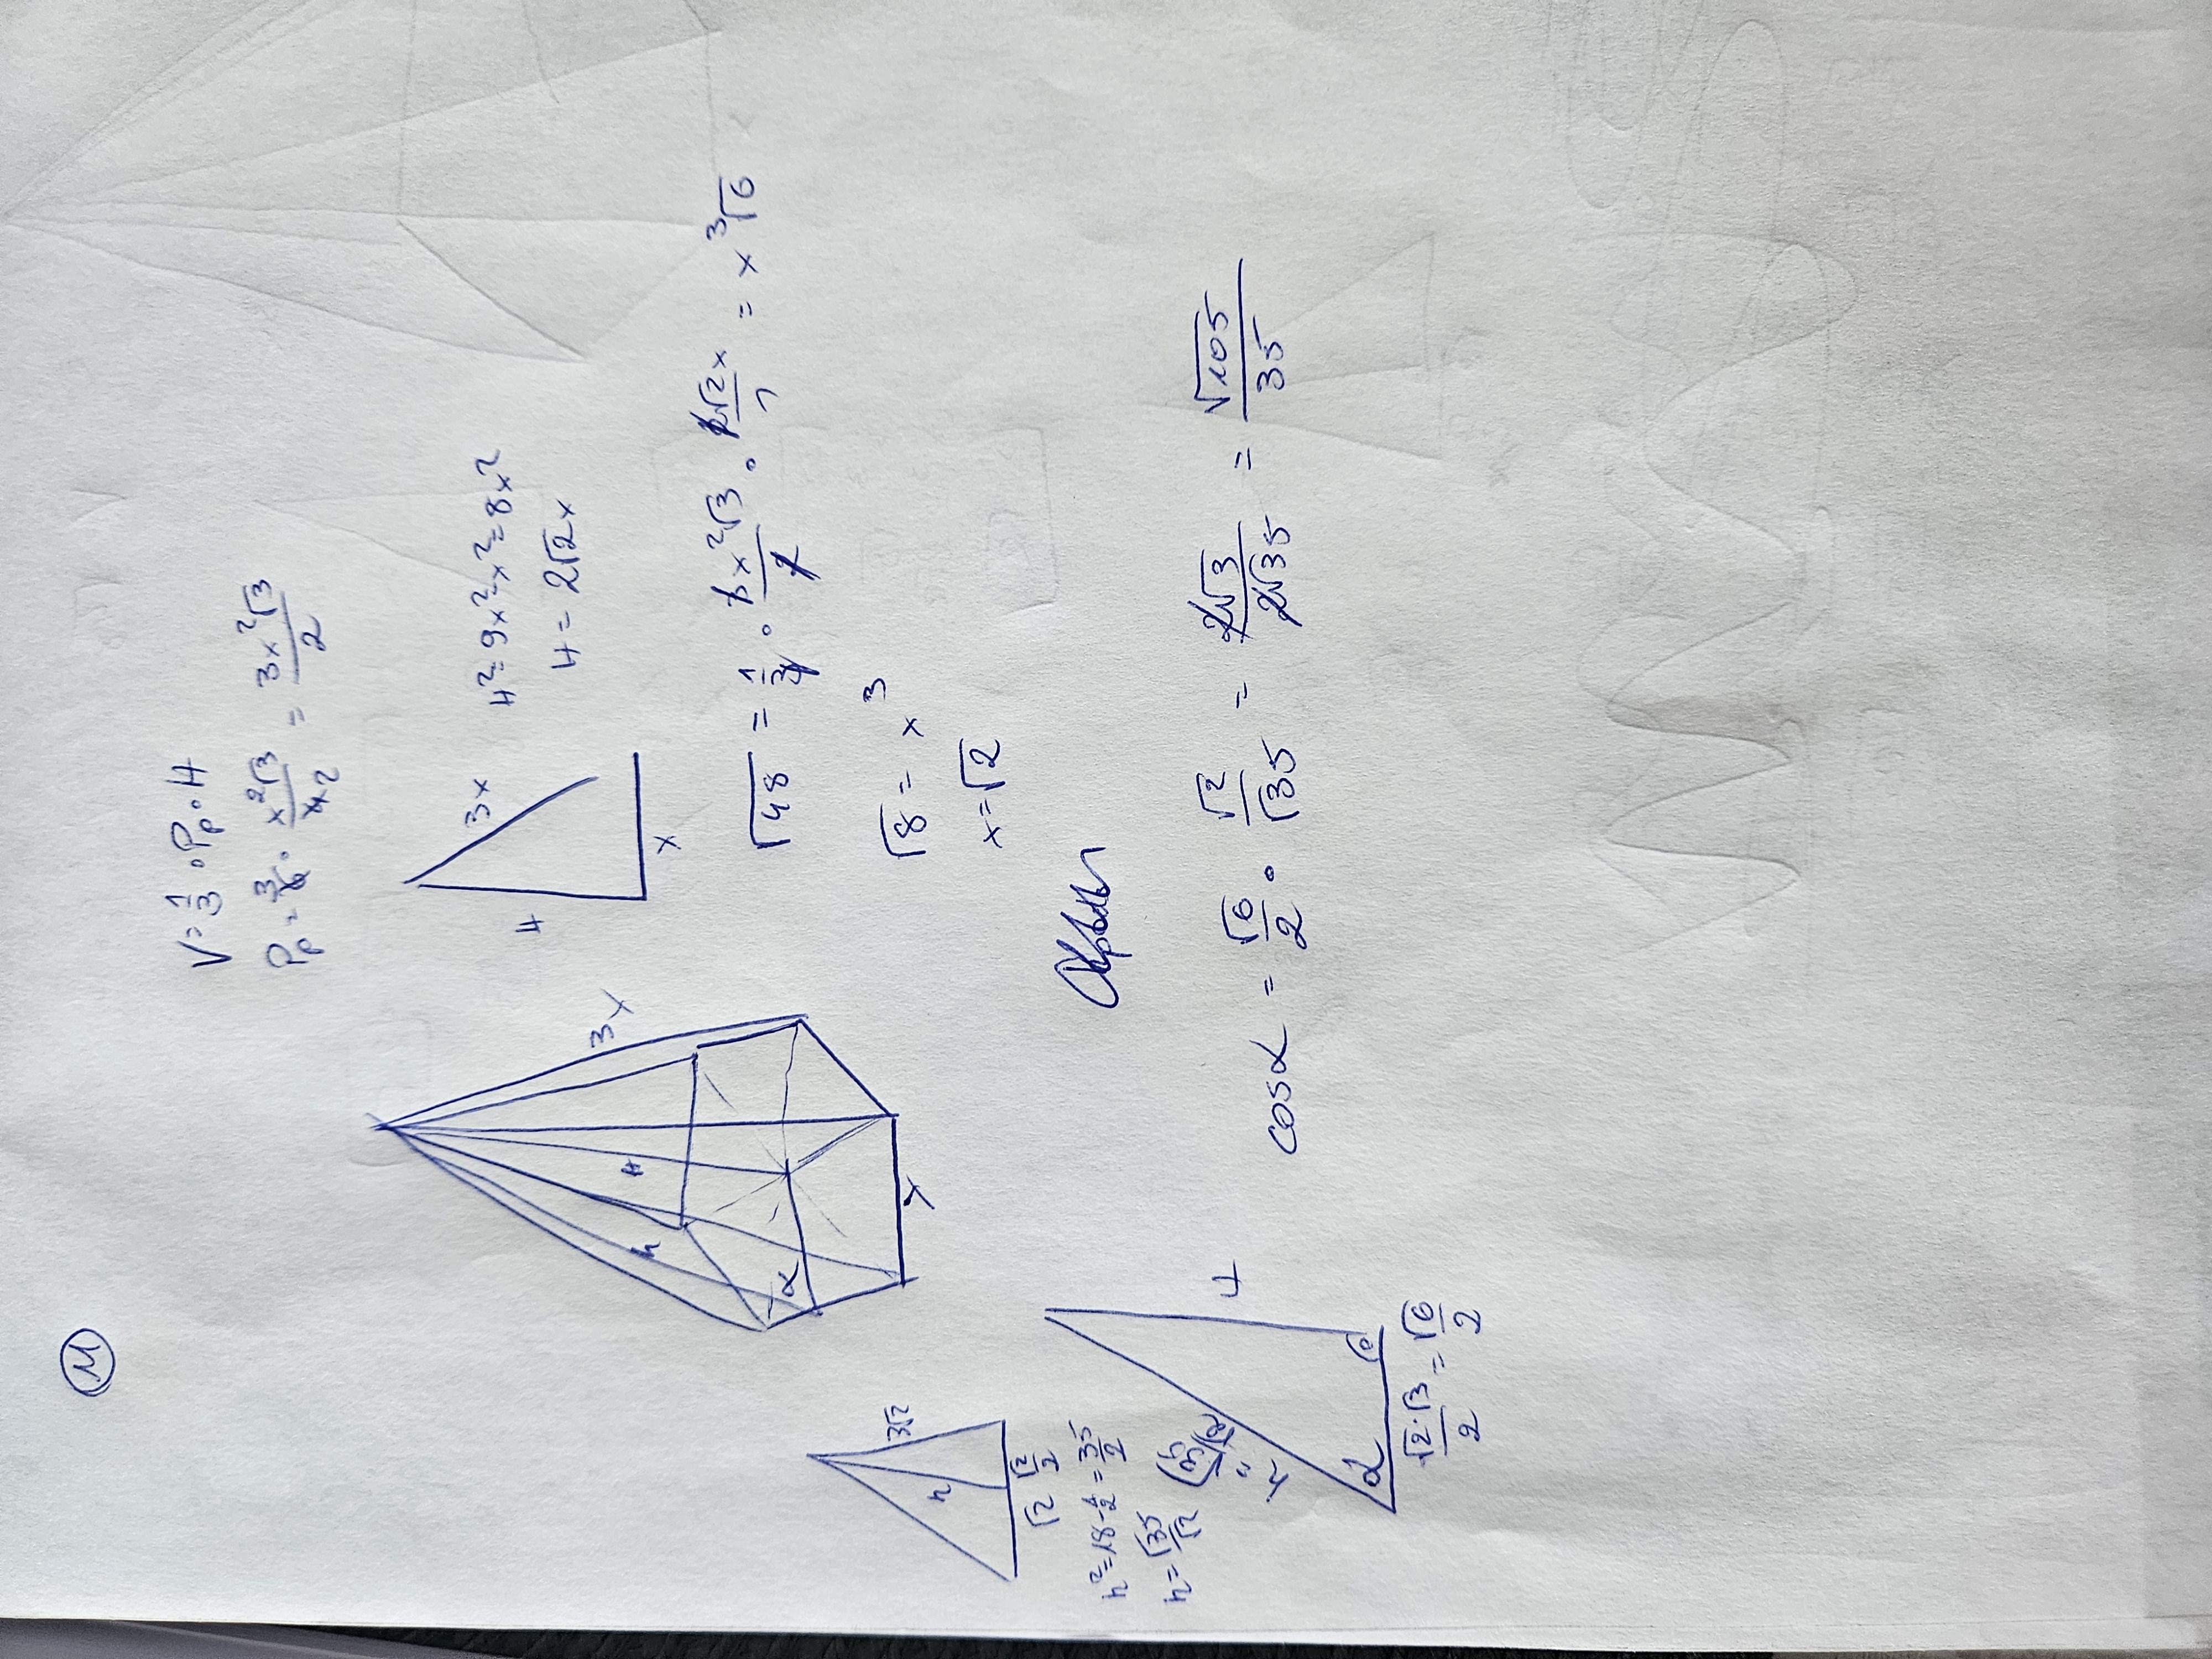 11
V = 1/3 · Pp · H
Pp = 6 · x²√3/4 2 = 3x²√3/2
3
H
3x
x
H² = 9x² - x² = 8x²
H = 2√2x
3x
H
h
α
x
√48 = 1/3 · 3x²√3/2 · 2√2x/1 = x³√6
√8 = x³
x = √2
3√2
h
√2 √2/2
h² = 18 - 1/2 = 35/2
h = √35/√2
√35/√2 = h
H
α
√2·√3/2 = √6/2
cosα = √6/2 · √2/√35 = 2√3/2√35 = √105/35